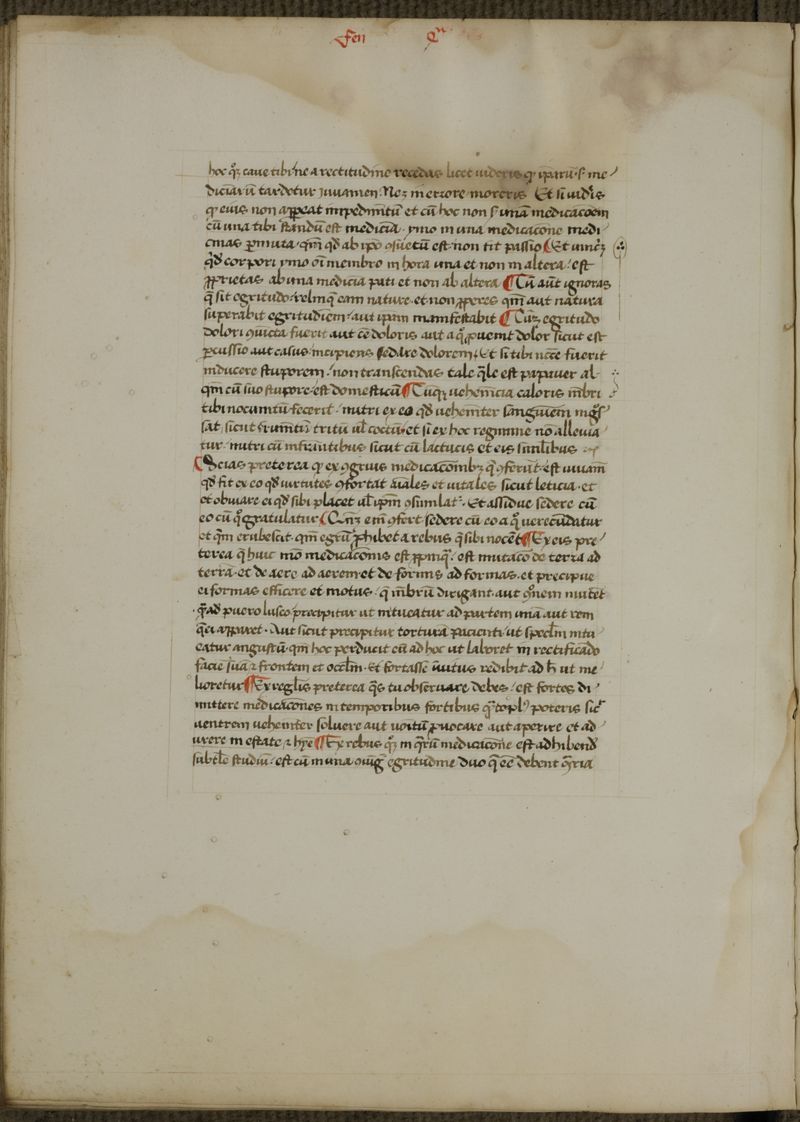 Fen Cᵐ
hoc qꝫ caue tibi ne a rectitudine recedas licet uideris qꝫ iparū s. me
diciarū tardetur iuuamen Neꝫ in errore moreris Et si uid'is
qꝫ eius non appeat impedimtū et cū hoc non s. unā medicacōem
cū una tibi standū est mediciā. ymo in una medicacōne medi
cinas ꝑmuta. qm̄ qd̄ ab ip̄o ꝯsuetū est non fit passio Et unicꝫ
qd̄ corpori ymo oī membro in hora una et non in altera. est
ꝓprietas ab una medicia pati et non ab altera Cū aūt ignoras
q̄ sit egritudo. relinq̄ eam nature. et non ꝓperes qm̄ aut natura
superabit egritudiem. aut ipam manifestabit Cūꝫ egritudo
dolori ꝯiuncta fuerit aut cē doloris aut a q̄ ꝓuenit dolor sicut est
ꝑcussio aut casus. incipiens sedare dolorem. Et si tibi necē fuerit
inducere stuporem. non transcendas tale q̄le est papauer al
qm̄ cū suo stupore. est domesticū Cuqꝫ uehemēcia caloris mēbri
tibi nocumtū fecerit. nutri ex eo qd̄ uehemter sanguinem ingros
sat. sicut frumtū tritū ul' coctū. et si ex hoc regimine nō alleuia
tur. nutri cū infrigidantibus sicut cū lactucis et eis similibus
Scias preterea qꝫ ex ꝯgruis medicacōnibꝫ q̄ ꝯferūt. est iuuam
qd̄ fit ex eo qd̄ uirtutes ꝯfortat aiales et uitales sicut leticia. et
et obuiare ei qd̄ sibi placet ul' ip̄m ꝯsimilat. Et assidue sedere cū
eo cū qꝰ gratulatur Cūꝫ em̄ ꝯfert sedere cū eo a q̄ uerecūdatur
et qm̄ erubescit. qm̄ egrū ꝓhibet a rebus q̄ sibi nocēt Ex eis pre
terea q̄ huic mō medicacōnis est ꝓpinqꝫ. est mutacō de terra ad
terrā. et de aere ad aerem et de formis ad formas. et precipue
ei formas efficere et motus. q̄ mēbrū dirigant aut q̄nem mutēt
q̄ad puero lusco precipitur ut intueatur ad partem unā aut rem
q̄ ei apparet. Aut sicut precipitur torturā pacienti. ut specl'm intu
eatur angustū. qm̄ hoc perducit eū ad hoc ut laboret in rectificādo
facie suā ⁊ frontem et ocl'm. Et fortasse nutus redibit ad h̄ ut me
lioretur Ex reglis preterea q̄s tu obseruare debes. est fortes di
mittere medicacōnes in temporibus fortibus q̄to plꝰ poteris sic
uentrem uehemter soluere aut uoitū ꝓuocare aut aperire et ad
urere in estate ⁊ hye Ex rebus qꝫ in q̄rū medicacōne est adhibend
subtile studiū. est cū in una ꝯiūg egritudine duo q̄ eē debent ꝯria